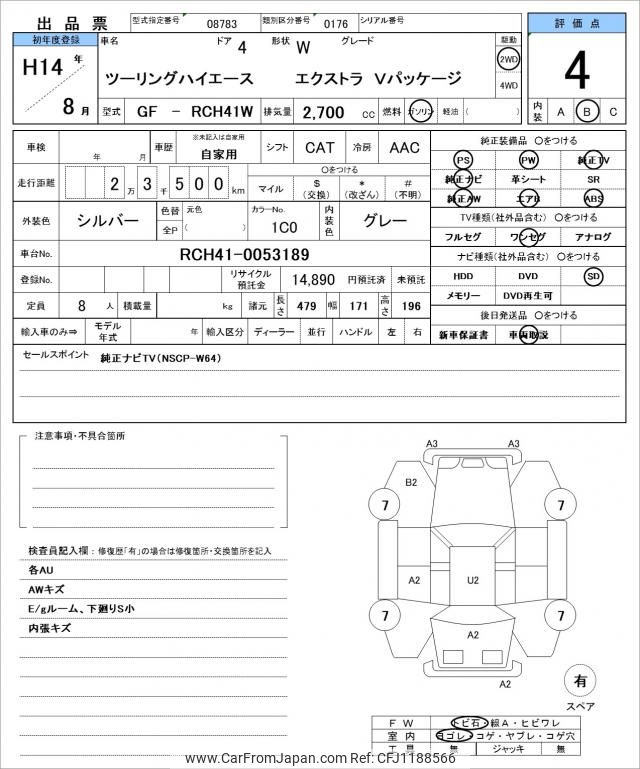 出品票 型式指定番号 08783 類別区分番号 0176 シリアル番号
評価点
4
内装 A B C
初年度登録
H14 年
8 月
車名 ドア 4 形状 W グレード 駆動
ツーリングハイエース エクストラ Vパッケージ
2WD
4WD
型式 GF － RCH41W 排気量 2,700 cc 燃料 ガソリン 軽油 ( )
車検 年 月 車歴 ※未記入は自家用 自家用 シフト CAT 冷房 AAC
走行距離 2 万 3 千 5 0 0 km
○をつける
マイル $ (交換) * (改ざん) # (不明)
外装色 シルバー 色替 全P 元色 ( ) カラーNo. 1C0 内装色 グレー
車台No. RCH41-0053189
登録No. リサイクル預託金 14,890 円預託済 未預託
定員 8 人 積載量 kg 諸元 長さ 479 幅 171 高さ 196
輸入車のみ⇒ モデル年式 年 輸入区分 ディーラー 並行 ハンドル 左 右
純正装備品 ○をつける
PS PW 純正TV
純正ナビ 革シート SR
純正AW エアB ABS
TV種類(社外品含む) ○をつける
フルセグ ワンセグ アナログ
ナビ種類(社外品含む) ○をつける
HDD DVD SD
メモリー DVD再生可
後日発送品 ○をつける
新車保証書 車両取説
セールスポイント 純正ナビTV(NSCP-W64)
注意事項・不具合箇所
検査員記入欄：修復歴「有」の場合は修復箇所・交換箇所を記入
各AU
AWキズ
E/gルーム、下廻りS小
内張キズ
A3 A3
B2
7 7
A2 U2
7 7
A2
A2
有
スペア
FW トビ石・線A・ヒビワレ
室内 ヨゴレ・コゲ・ヤブレ・コゲ穴
工具 無 ジャッキ 無
www.CarFromJapan.com Ref: CFJ1188566